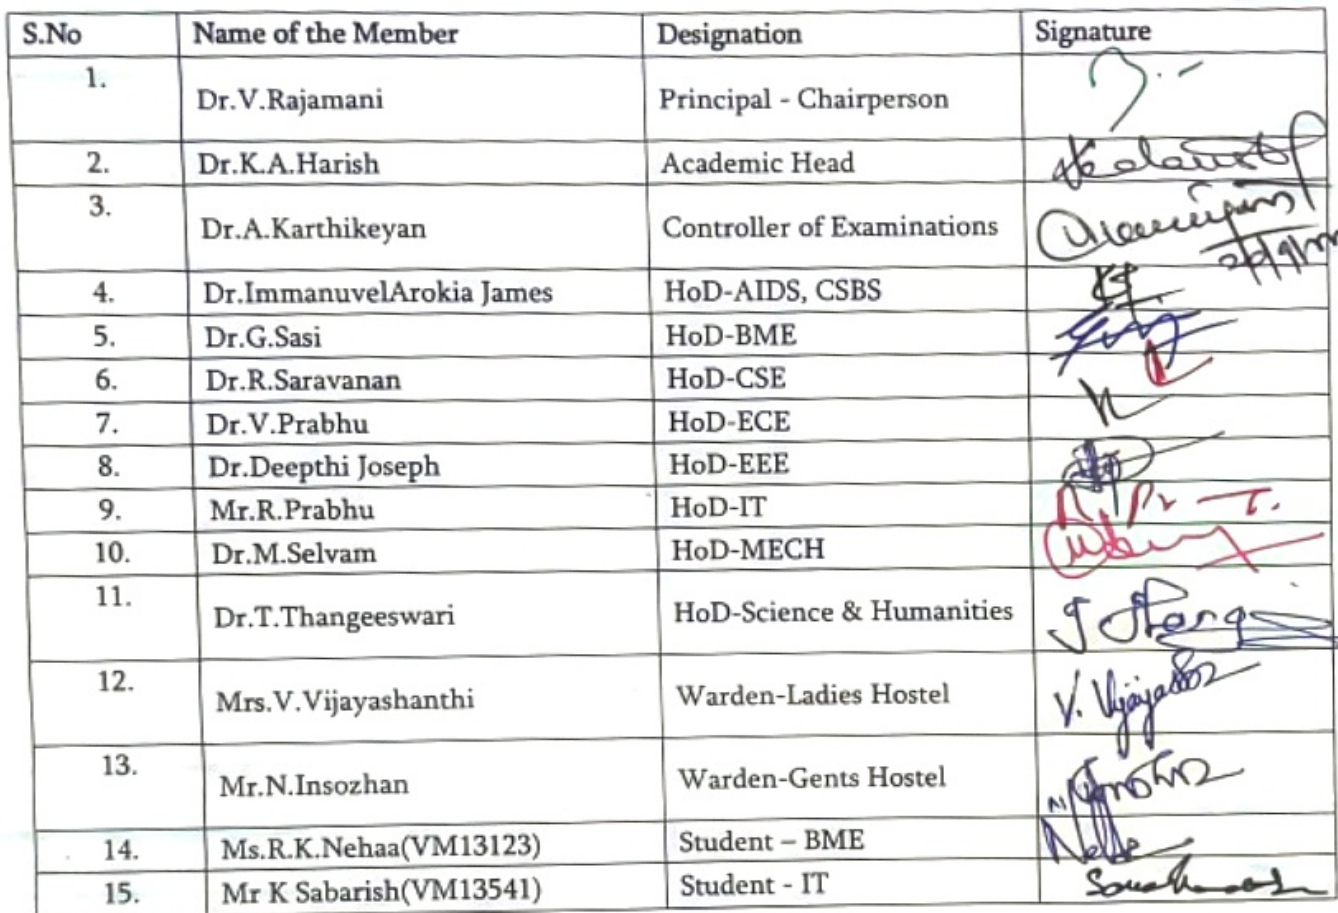 S.No Name of the Member Designation Signature
1. Dr.V.Rajamani Principal - Chairperson
2. Dr.K.A.Harish Academic Head
3. Dr.A.Karthikeyan Controller of Examinations
4. Dr.ImmanuvelArokia James HoD-AIDS, CSBS
5. Dr.G.Sasi HoD-BME
6. Dr.R.Saravanan HoD-CSE
7. Dr.V.Prabhu HoD-ECE
8. Dr.Deepthi Joseph HoD-EEE
9. Mr.R.Prabhu HoD-IT
10. Dr.M.Selvam HoD-MECH
11. Dr.T.Thangeeswari HoD-Science & Humanities
12. Mrs.V.Vijayashanthi Warden-Ladies Hostel
13. Mr.N.Insozhan Warden-Gents Hostel
14. Ms.R.K.Nehaa(VM13123) Student – BME
15. Mr K Sabarish(VM13541) Student - IT